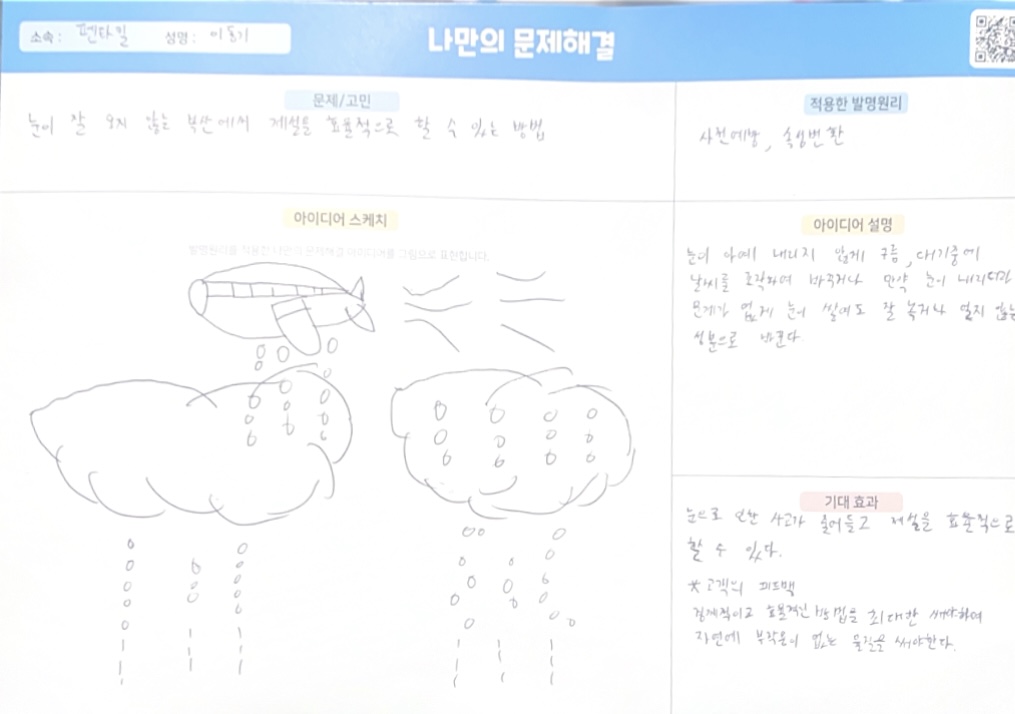 소속 : 펜타킬 성명 : 이동기
나만의 문제해결
문제/고민
눈이 잘 오지 않는 부산에서 제설을 효율적으로 할 수 있는 방법
적용한 발명원리
사전예방, 속성변환
아이디어 스케치
발명원리를 적용한 나만의 문제해결 아이디어를 그림으로 표현합니다.
아이디어 설명
눈이 아예 내리지 않게 구름, 대기중에
날씨를 조작하여 바꾸거나 만약 눈이 내리더라
문제가 없게 눈이 쌓여도 잘 녹거나 얼지 않는
성분으로 바꾼다.
기대 효과
눈으로 인한 사고가 줄어들고 제설을 효율적으로
할 수 있다.
*고객의 피드백
경제적이고 효율적인 방법을 최대한 생각하여
자연에 부작용이 없는 물질을 써야한다.